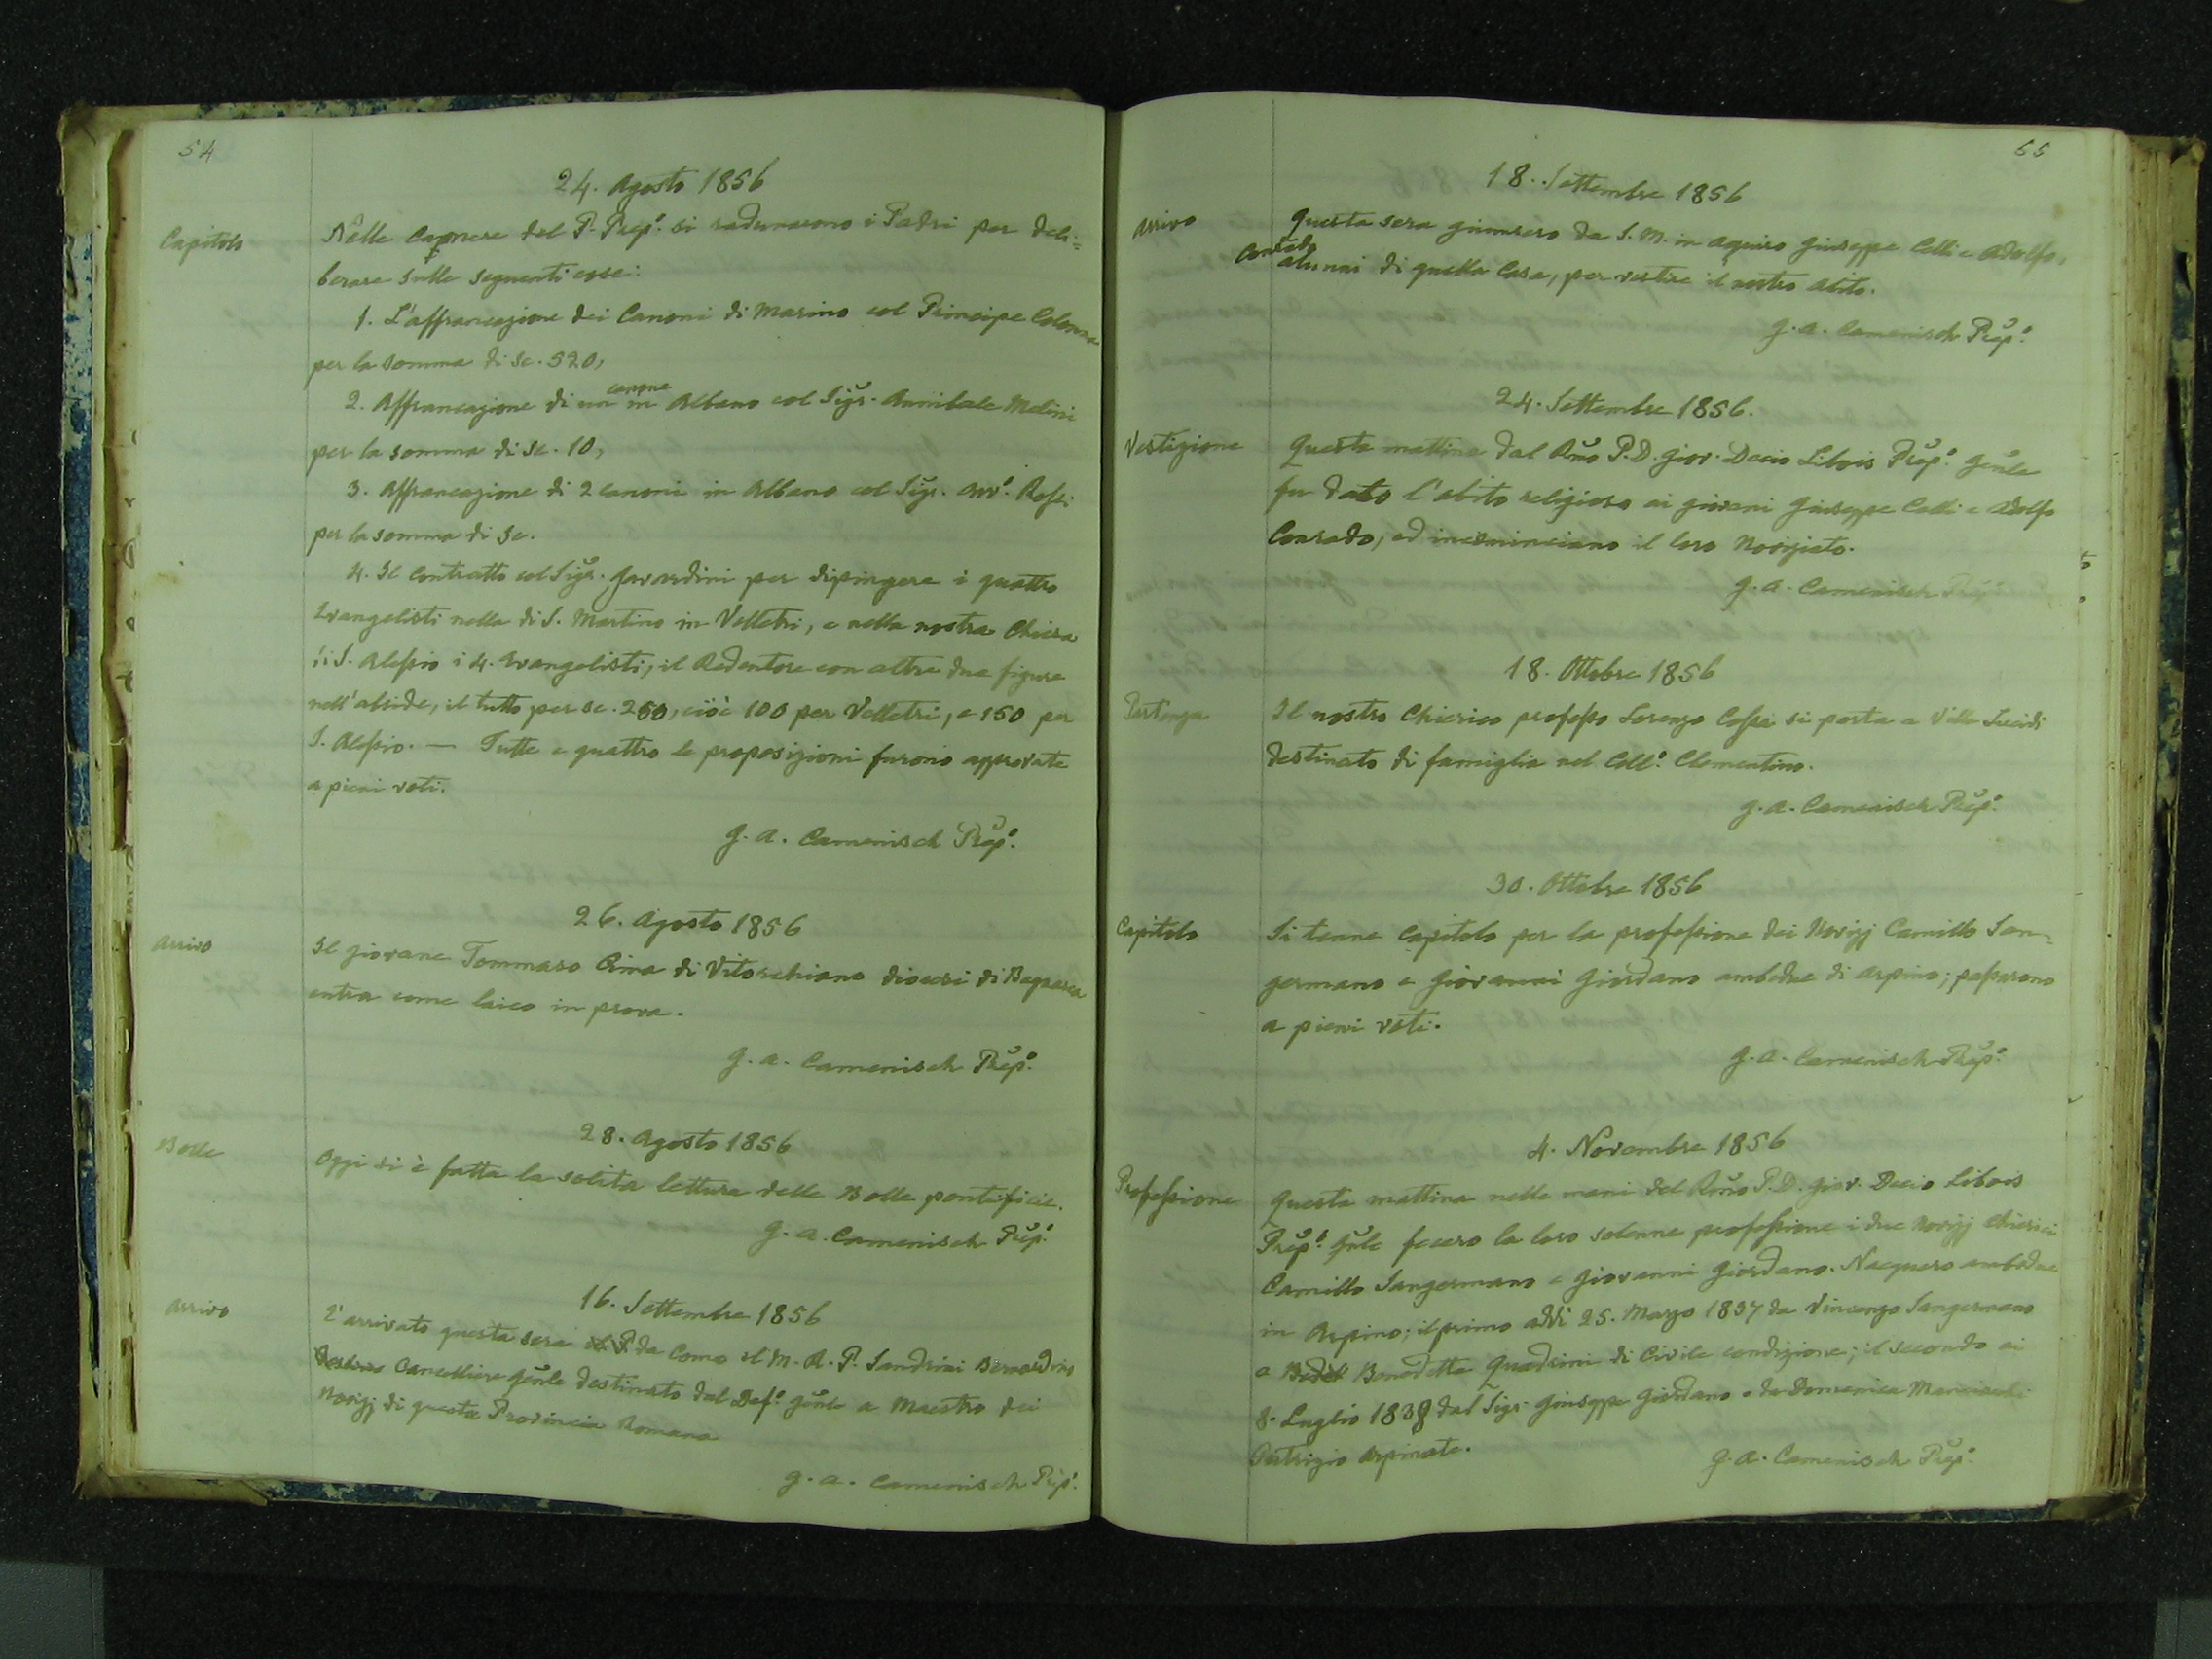 54
24. Agosto 1856
Capitolo
Nelle Camere del P. Prep.º si radunarono i Padri per deli=
berare sulle seguenti cose:
1. L'affrancazione dei Canoni di Marino col Principe Colonna
per la somma di sc. 520,
2. Affrancazione di un canone in Albano col Sigr. Annibale Melini
per la somma di sc. 10,
3. Affrancazione di 2 canoni in Albano col Sigr. Avv.º Rossi
per la somma di sc.
4. Il contratto col Sigr. Gavardini per dipingere i quattro
Evangelisti nella di S. Martino in Velletri, e nella nostra Chiesa
di S. Alessio i 4. Evangelisti, il Redentore con altre due figure
nell'abside, il tutto per sc. 250, cioè 100 per Velletri, e 150 per
S. Alessio. — Tutte e quattro le proposizioni furono approvate
a pieni voti.
G. A. Camenisch Prep.º
26. Agosto 1856
Arrivo
Il giovane Tommaso Cima di Vitorchiano diocesi di Bagnarea
entra come laico in prova.
G. A. Camenisch Prep.º
28. Agosto 1856
Bolle
Oggi si è fatta la solita lettura delle Bolle pontificie.
G. A. Camenisch Prep.º
16. Settembre 1856
Arrivo
È arrivato questa sera da Como il M. R. P. Sandrini Bernardino
Cancelliere Gñle destinato dal Def.º Gñle a Maestro dei
Novizj di questa Provincia Romana
G. A. Camenisch Prep.º
55
18. Settembre 1856
Arrivo
Questa sera giunsero da S. M. in Aquiro Giuseppe Celli e Adolfo,
Conrado alunni di quella Casa, per vestire il nostro abito.
G. A. Camenisch Prep.º
24. Settembre 1856.
Vestizione
Questa mattina dal Rm̃o P. D. Giov. Decio Libois Prep.º Gñle
fu dato l'abito religioso ai giovani Giuseppe Celli e Adolfo
Conrado, ed incominciano il loro Noviziato.
G. A. Camenisch Prep.º
18. Ottobre 1856
Partenza
Il nostro Chierico professo Lorenzo Cossa si porta a Villa Lucidi
destinato di famiglia nel Coll.º Clementino.
G. A. Camenisch Prep.º
30. Ottobre 1856
Capitolo
Si tenne Capitolo per la professione dei Novizj Camillo San=
germano e Giovanni Giordano ambedue di Arpino; passarono
a pieni voti.
G. A. Camenisch Prep.º
4. Novembre 1856
Professione
Questa mattina nelle mani del Rm̃o P. D. Giov. Decio Libois
Prep.º Gñle fecero la loro solenne professione i due Novizj chierici
Camillo Sangermano e Giovanni Giordano. Nacquero ambedue
in Arpino; il primo addì 25. Marzo 1837 da Vincenzo Sangermano
e Benedetta Quadrini di Civile condizione; il secondo ai
8. Luglio 1838 dal Sigr. Giuseppe Giordano e da Domenica
Patrizio Arpinate.
G. A. Camenisch Prep.º